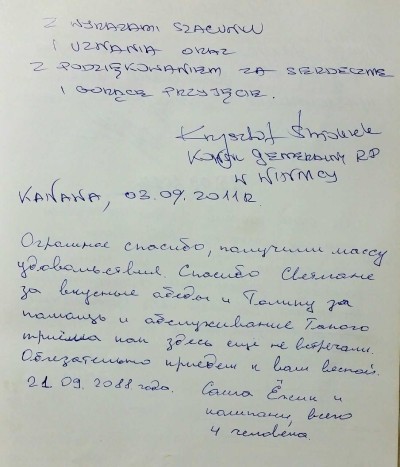 Z WYRAZAMI SZACUNKU
I UZNANIA ORAZ
Z PODZIĘKOWANIEM ZA SERDECZNE
I GORĄCE PRZYJĘCIE.
Krzysztof
Konsul Generalny RP
w Winnicy
KANAWA, 03.09.2011R.
Огромное спасибо, получили массу
удовольствия. Спасибо Светлане
за вкусные обеды и Толину за
помощь и обслуживание Такого
приёма нам здесь еще не встречали.
Обязательно приедем к вам весной.
21 09. 2011 года. Саша и
компания, всего
4 человека.